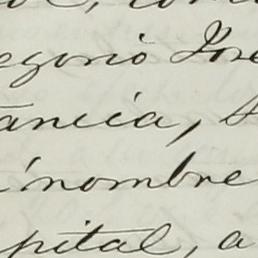 egorio José
tancia, 
nombre
pital, a